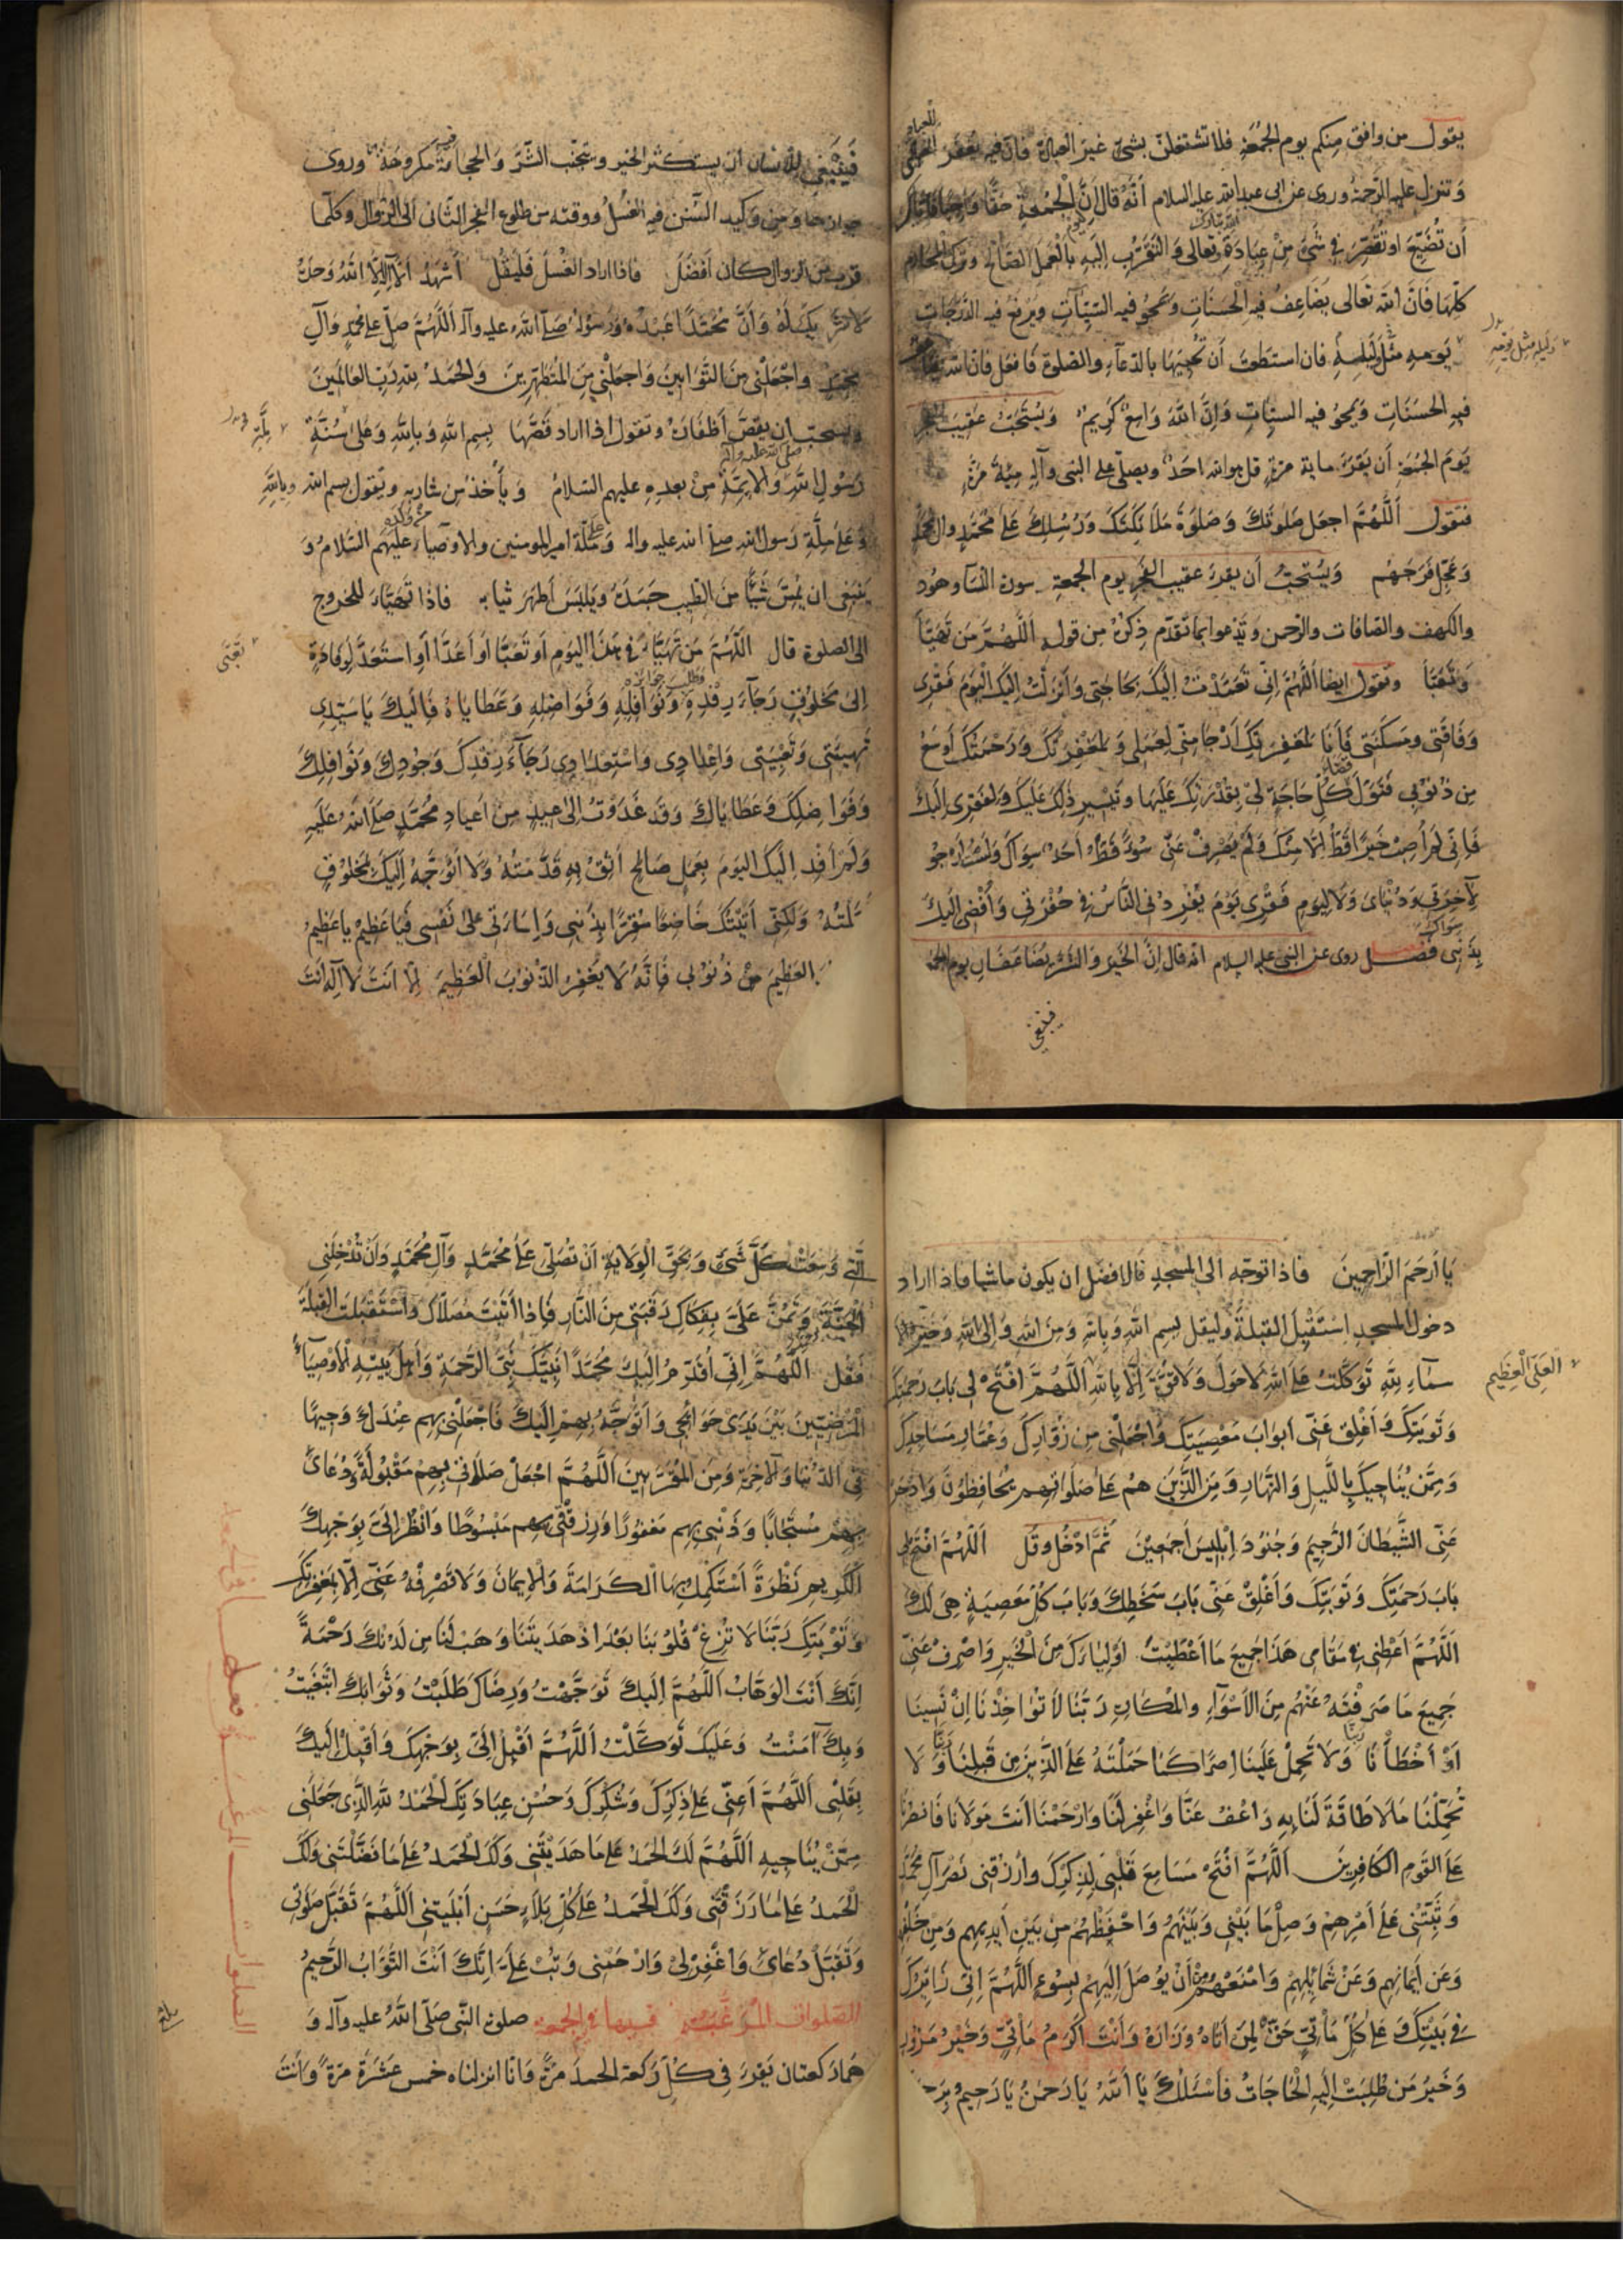 يقول من وافق منكم يوم الجُمُعَةِ فلا تشتغلنّ بشئ غير العبادة فانّ فيه يُغفَر
وتنزل عليهم الرّحمة وروى عن ابى عبد الله عليه السلام أنّهُ قال إنَّ لِلجُمُعَةِ حَقًّا
أن تُضَيِّعَ او تُقَصِّرَ فى شَئٍ مِنْ عِبَادَةِ تعالى وَالتَّقَرُّب إليَهِ بالعَمَلِ الصّالح وترك المحارم
كلّهَا فانّ الله تعالى يُضاعِفُ فيهِ الحسَنَاتِ ويَمحُو فيه السّيّآتِ ويَرفعُ فيه الدّرَجَاتِ
يَومه مثل ليلته فان استطعتَ أن تُحيِيَهَا بالدّعآءِ والصّلوة فَافعَل فانّ الله
وليله مثل يومه
فيه الحسَنَاتِ وَيمحُو فيه السيّئاتِ وَإنَّ اللهَ وَاسِعٌ كَريمٌ وَيُستَحَبّ عَقِيبَ
يَومَ الجُمُعَةِ أن يَقرَءَ ماية مرّةٍ قل هو الله احَدٌ ويصلّى على النبى وآله مِئَةَ مَرَّةٍ
فتقول اَللَّهُمَّ اجعَل صَلَوٰتكَ وَصَلَوٰةَ مَلَائكَتِكَ وَرُسُلِكَ عَلىٰ مُحَمّدٍ وال محمّد
وَعَجِّل فَرَجَهُم وَيُستَحَبّ أن يقرء عقيب الفجر يوم الجمعة سورة النّسآء وهُود
والكهف والصّافات والرّحمن ويَدعوا بما تقدّم ذِكرهُ مِن قوله اَللّهُمّ مَن تَهَيّأ
وَتَعَبّأ وتقول ايضا اللّهُمّ اِنّى تَعَمّدْتُ اِلَيكَ بِحَاجَتِى وَأنزَلتُ اِليكَ اليَومَ فَقْرى
وَفَاقَتى وَمَسكَنَتى فَأنَا لمَغفِرَتِكَ أرْجَا مِنّى لِعَمَلى وَلمَغْفِرَتُكَ وَرَحْمَتُكَ أوسَعُ
مِن ذُنوُبى فَتَوَلَّ قضاء كُلِّ حَاجَةٍ لىْ بِقُدْرَتِكَ عَلَيهَا وَتَيْسِيرِ ذٰلِكَ عَلَيكَ وَلِفَقرِى اِلَيكَ
فَاِنّى لَم أُصِبْ خَيرًا قَطُّ اِلّا مِنْكَ وَلَم يَصْرِفْ عَنّى سُوءً قَطّ أحَدٌ سِوَاكَ وَلَستُ أرْجُو
لِآخِرَتى وَدُنْيَاىَ وَلَا لِيَومِ فَقْرِى يَوْمَ يُفرِدُنى النّاسُ فى حُفْرَتى وَأُفْضِى اِلَيكَ
سِوَاكَ
بِذَنْبى فصل روى عن النبى عليه السلام انه قال اِنَّ الخَيرَ وَالشّرّ يُضَاعَفَانِ يوم الجمعة
فينبغى
فَيَنْبَغِى لِلإنسانِ ان يستكثر الخير ويتجنّب الشّرّ وَالحِجَامَةُ فيه مكروهَةٌ وروى
جوازها وَمِن وَكيدِ السُّنَنِ فيهِ الغُسْلُ ووقته من طلوع الفجر الثّانى اَلى الزوال وكلّما
قرب من الزوال كان أفضَلَ فاذا اراد الغُسلَ فَليَقُل أشهَدُ أن لا إلٰهَ اِلّا اللهُ وَحدَهُ
لاشَريكَ لَهُ وَأنّ مُحَمّدًا عَبْدُهُ وَرَسُولُهُ صلّى الله عليه وآله اَللّهُمّ صَلّ على مُحمّدٍ وآلِ
محمّدٍ واجْعَلْنى مِنَ التّوّابينَ وَاجعَلْنى مِنَ المُتطهّرينَ وَالحَمدُ لله رَبّ العَالمينَ
ويستحبّ ان يقصّ أظفَارَهُ وتقول اذا اراد قَصّهَا بِسم اللهِ وَبِاللهِ وَعَلى سُنّةِ
ملّة
رَسُولِ اللهِ صلى الله عليه وآله وَالائِمّةِ مِنْ بعدِهِ عليهم السّلامُ وَيأخذ من شاربه ويقول بسم الله وبالله
وَعَلى مِلّةِ رَسولِ الله صلى الله عليه واله وَمِلّة امير المومنين والاوصياء عَليهم السّلامُ وَ
يَنبَغى ان يَمسّ شَيئًا مِنَ الطّيب جَسَدَهُ وَيلبَسَ أطهَرَ ثيابه فاذا تَهَيّاءَ للخروج
اِلى الصلوة قال اَللّهُمّ مَن تَهَيّاءَ فى هٰذا اليَومِ أو تَعَبّا أو أعَدّ أو استَعَدّ لِوِفادَةٍ
تعبّى
اِلى مَخلوُقٍ رَجَآءَ رِفدِهِ وَنَوَافِلِهِ وَفَوَاضِلِهِ وَعَطايَاهُ فَاِلَيكَ يَا سَيّدِى
تَهيِئَتى وَتَعْبِيَتى وَاِعْدادى وَاسْتِعْدادى رَجَآءَ رِفْدِكَ وَجُودِكَ وَنَوَافِلِكَ
وَفَوَاضِلِكَ وَعَطَايَاكَ وَقَد غَدَوْتُ اِلىٰ عِيدٍ مِن أعيادِ مُحَمّدٍ صَلّى اللهُ عَلَيهِ
وَلَم أفِد اِلَيكَ اليَومَ بِعَمَلٍ صَالحٍ أثِقُ بِهِ قَدّمْتُهُ وَلا أتَوَجّهُ اِلَيكَ بِمخلُوقٍ
أمّلتُهُ وَلٰكِنّى أتَيْتُكَ خَاضِعًا مُقِرًّا بِذَنبى وَاِسَاءَتى عَلىٰ نَفسى فَيَا عَظيمُ يا عَظِيمُ
العَظيمَ مِنْ ذُنوُبى فَاِنّهُ لَا يَغفِرُ الذّنوُبَ العَظِيمَةَ اِلّا أنتَ لَا اِلٰهَ اِلّا أنتَ
يَا أرحَمَ الرّاحِمِينَ فاذا توجّه الى المسجدِ فَالافضَل ان يكون ماشيا فاذا اراد
دخول المسجد اِسْتَقْبَلَ القبلةَ وَليقل بِسمِ اللهِ وَبِاللهِ وَمِنَ اللهِ وَاِلى اللهِ وَخَيرُ
سْمَآءِ للهِ تَوَكّلتُ عَلى اللهِ لَاحَولَ وَلَا قُوّةَ اِلّا بِاللهِ اَللّهُمّ افْتَحْ لى بَابَ رَحمَتِكَ
العَلِىّ العَظِيم
وَتَوبَتِكَ وَأغلِق عَنّى أبوَابَ مَعْصِيَتِكَ وَاجْعَلْنى مِن زُوّارِكَ وَعُمّارِ مَسَاجِدِكَ
وَمِمّن يُنَاجِيكَ بِاللّيلِ وَالنّهَارِ وَمِنَ الّذِينَ هُمْ عَلى صَلَوَاتِهِم يُحَافِظُونَ وَادْحَر
عَنّى الشّيطَانَ الرّجِيمَ وَجُنوُدَ اِبْلِيسَ أجمَعِينَ ثُمّ ادْخُل وَقُل اَللّهُمّ افْتَح لى
بَابَ رَحمَتِكَ وَتَوبَتِكَ وَأغْلِقْ عَنّى بَابَ سَخَطِكَ وَبَابَ كُلّ مَعصِيَةٍ هِىَ لَكَ
اَللّهُمّ أعْطِنى فى مَقَامى هَذَا جَمِيعَ مَا أعْطَيتَ أولِيَاءَكَ مِنَ الْخَيرِ وَاصْرِفْ عَنّى
جَمِيعَ مَا صَرَفْتَهُ عَنْهُم مِنَ الأسْوَآءِ وَالمكَارِهِ رَبّنَا لَا تُوَاخِذْنَا اِنْ نَسِينَا
أوْ أخْطَأْنَا رَبّنَا وَلَا تَحمِلْ عَلَينَا اِصرًا كمَا حَمَلْتَهُ عَلى الّذِينَ مِن قَبلِنَا رَبّنَا وَلَا
تُحَمّلْنَا مَا لَا طَاقَةَ لَنَا بِهِ وَاعْفُ عَنّا وَاغْفِرلَنَا وَارْحَمْنَا أنتَ مَولَانَا فَانصُرْنَا
عَلى القَومِ الكَافِرِينَ اَللّهُمّ افْتَحْ مَسَامِعَ قَلْبى لِذِكْرِكَ وارْزُقنى نَصْرَ آلِ مُحمّدٍ
وَثَبّتْنى عَلى أمْرِهِمْ وَصِلْ مَا بَيْنى وَبَيْنَهُمْ وَاحْفِظْهُمْ مِنْ بَيْنِ أيدِيهِم وَمِن خَلْفِهِم
وَعَن أيمَانِهِم وَعَنْ شَمَائِلِهِمْ وَامْنَعْهُمْ مِنْ أنْ يُوصَلَ اِلَيهِمْ بِسُوءٍ اَللّهُمّ اِنّى زَائِرُكَ
فى بَيْتِكَ وَ عَلى كُلّ مَأتِىٍّ حَقٌّ لِمَن أتَاهُ وَزَارَهُ وَأنْتَ أكرَمُ مَأْتِىٍّ وَخَيْرُ مَزُورٍ
وَخَيرُ مَن طُلِبَتْ اِلَيهِ الحَاجَاتُ فَأسْئَلُكَ يَا اَللهُ يَا رَحمٰنُ يَا رَحِيمُ
الّتى وَسِعَتْ كُلّ شَئٍ وَبِحَقّ الوِلَايَةِ أنْ تُصَلّى عَلى مُحمّدٍ وَآلِ مُحَمّدٍ وَأنْ تُدْخِلَنى
الجَنّةَ وَتَمُنّ عَلَىّ بِفِكَاكِ رَقَبَتى مِنَ النّارِ فَاِذَا أتَيْتَ مُصَلّاكَ وَاسْتَقْبَلتَ القِبلَةَ
فَقُل اَللّهُمّ اِنّى أُقَدّمُ اِلَيكَ مُحَمّدًا نَبِيّكَ نَبىّ الرّحْمَةِ وَأهلَ بَيْتِهِ الأوْصِيَآءَ
المَرْضِيّينَ بَيْنَ يَدَىْ حَوَائِجى وَأتَوَجّهُ بِهِمْ اِلَيكَ فَاجْعَلْنى بِهِم عِندَكَ وَجِيهًا
فى الدّنيَا وَالآخِرَةِ وَمِنَ المُقَرّبِينَ اَللّهُمّ اجْعَلْ صَلَاتى بِهِمْ مَقْبُولَةً وَدُعَائىَ
بِهِمْ مُستَجَابًا وَذَنْبى بِهِم مَغفُورًا وَرِزْقى بِهِم مَبْسُوطًا وَانْظُر اِلَىّ بِوَجهِكَ
الكَرِيمِ نَظْرَةً أسْتَكمِلُ بِهَا الكَرَامَةَ وَالإيمَانَ وَلَا تَصْرِفْهُ عَنّى اِلّا بِمَغْفِرَتِكَ
وَتَوْبَتِكَ رَبّنَا لَا تُزِغْ قُلُوبَنَا بَعْدَ اِذْ هَدَيتَنَا وَهَبْ لَنَا مِن لَدُنْكَ رَحْمَةً
اِنّكَ أنْتَ الوَهّابُ اَللّهُمّ اِلَيكَ تَوَجّهْتُ وَرِضَاكَ طَلَبْتُ وَثَوَابَكَ ابْتَغَيتُ
وَبِكَ آمَنْتُ وَعَلَيكَ تَوَكّلْتُ اَللّهُمّ أقْبِلْ اِلَىّ بِوَجْهِكَ وَأقْبِل اِلَيكَ
بِقَلْبى اَللّهُمّ أعِنّى عَلى ذِكْرِكَ وَشُكْرِكَ وَحُسْنِ عِبَادَتِكَ الْحَمْدُ للهِ الّذِى جَعَلَنى
مِمّنْ يُنَاجِيهِ اَللّهُمّ لَكَ الحَمدُ عَلى مَا هَدَيْتَنى وَلَكَ الحَمدُ عَلى مَا فَضّلْتَنى وَلَكَ
الْحَمدُ عَلى مَا رَزَقْتَنى وَلَكَ الْحَمدُ عَلى كُلّ بَلَاءٍ حَسَنٍ أبْلَيتَنى اَللّهُمّ تَقَبّل صَلَوتى
وَتَقَبّلْ دُعَائى وَاغْفِرْلىْ وَارْحَمْنى وَتُبْ عَلَىّ اِنّكَ أنْتَ التّوّابُ الرّحِيمُ
الصّلوات المرغّبُ فيها فى الجمعة صلوة النّبى صلّى اللهُ عليه وآله وَ
هُمَا رَكعتان يَقرَءُ فى كُلّ رَكعة الحمدَ مَرّةً وَانّا انزلناه خمس عَشْرَةَ مرّةً وَأنْتَ